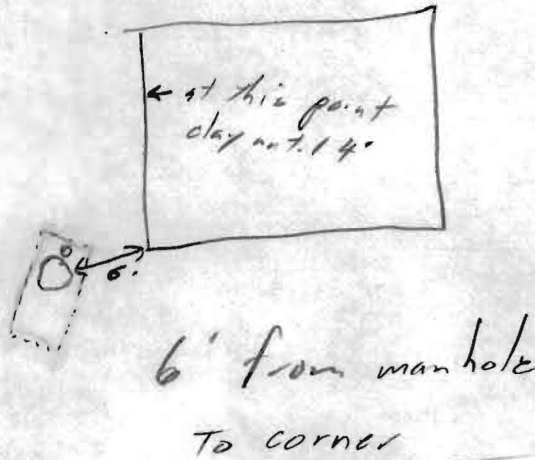 ← at this point
clay until 4'
6'
6' from manhole
To corner